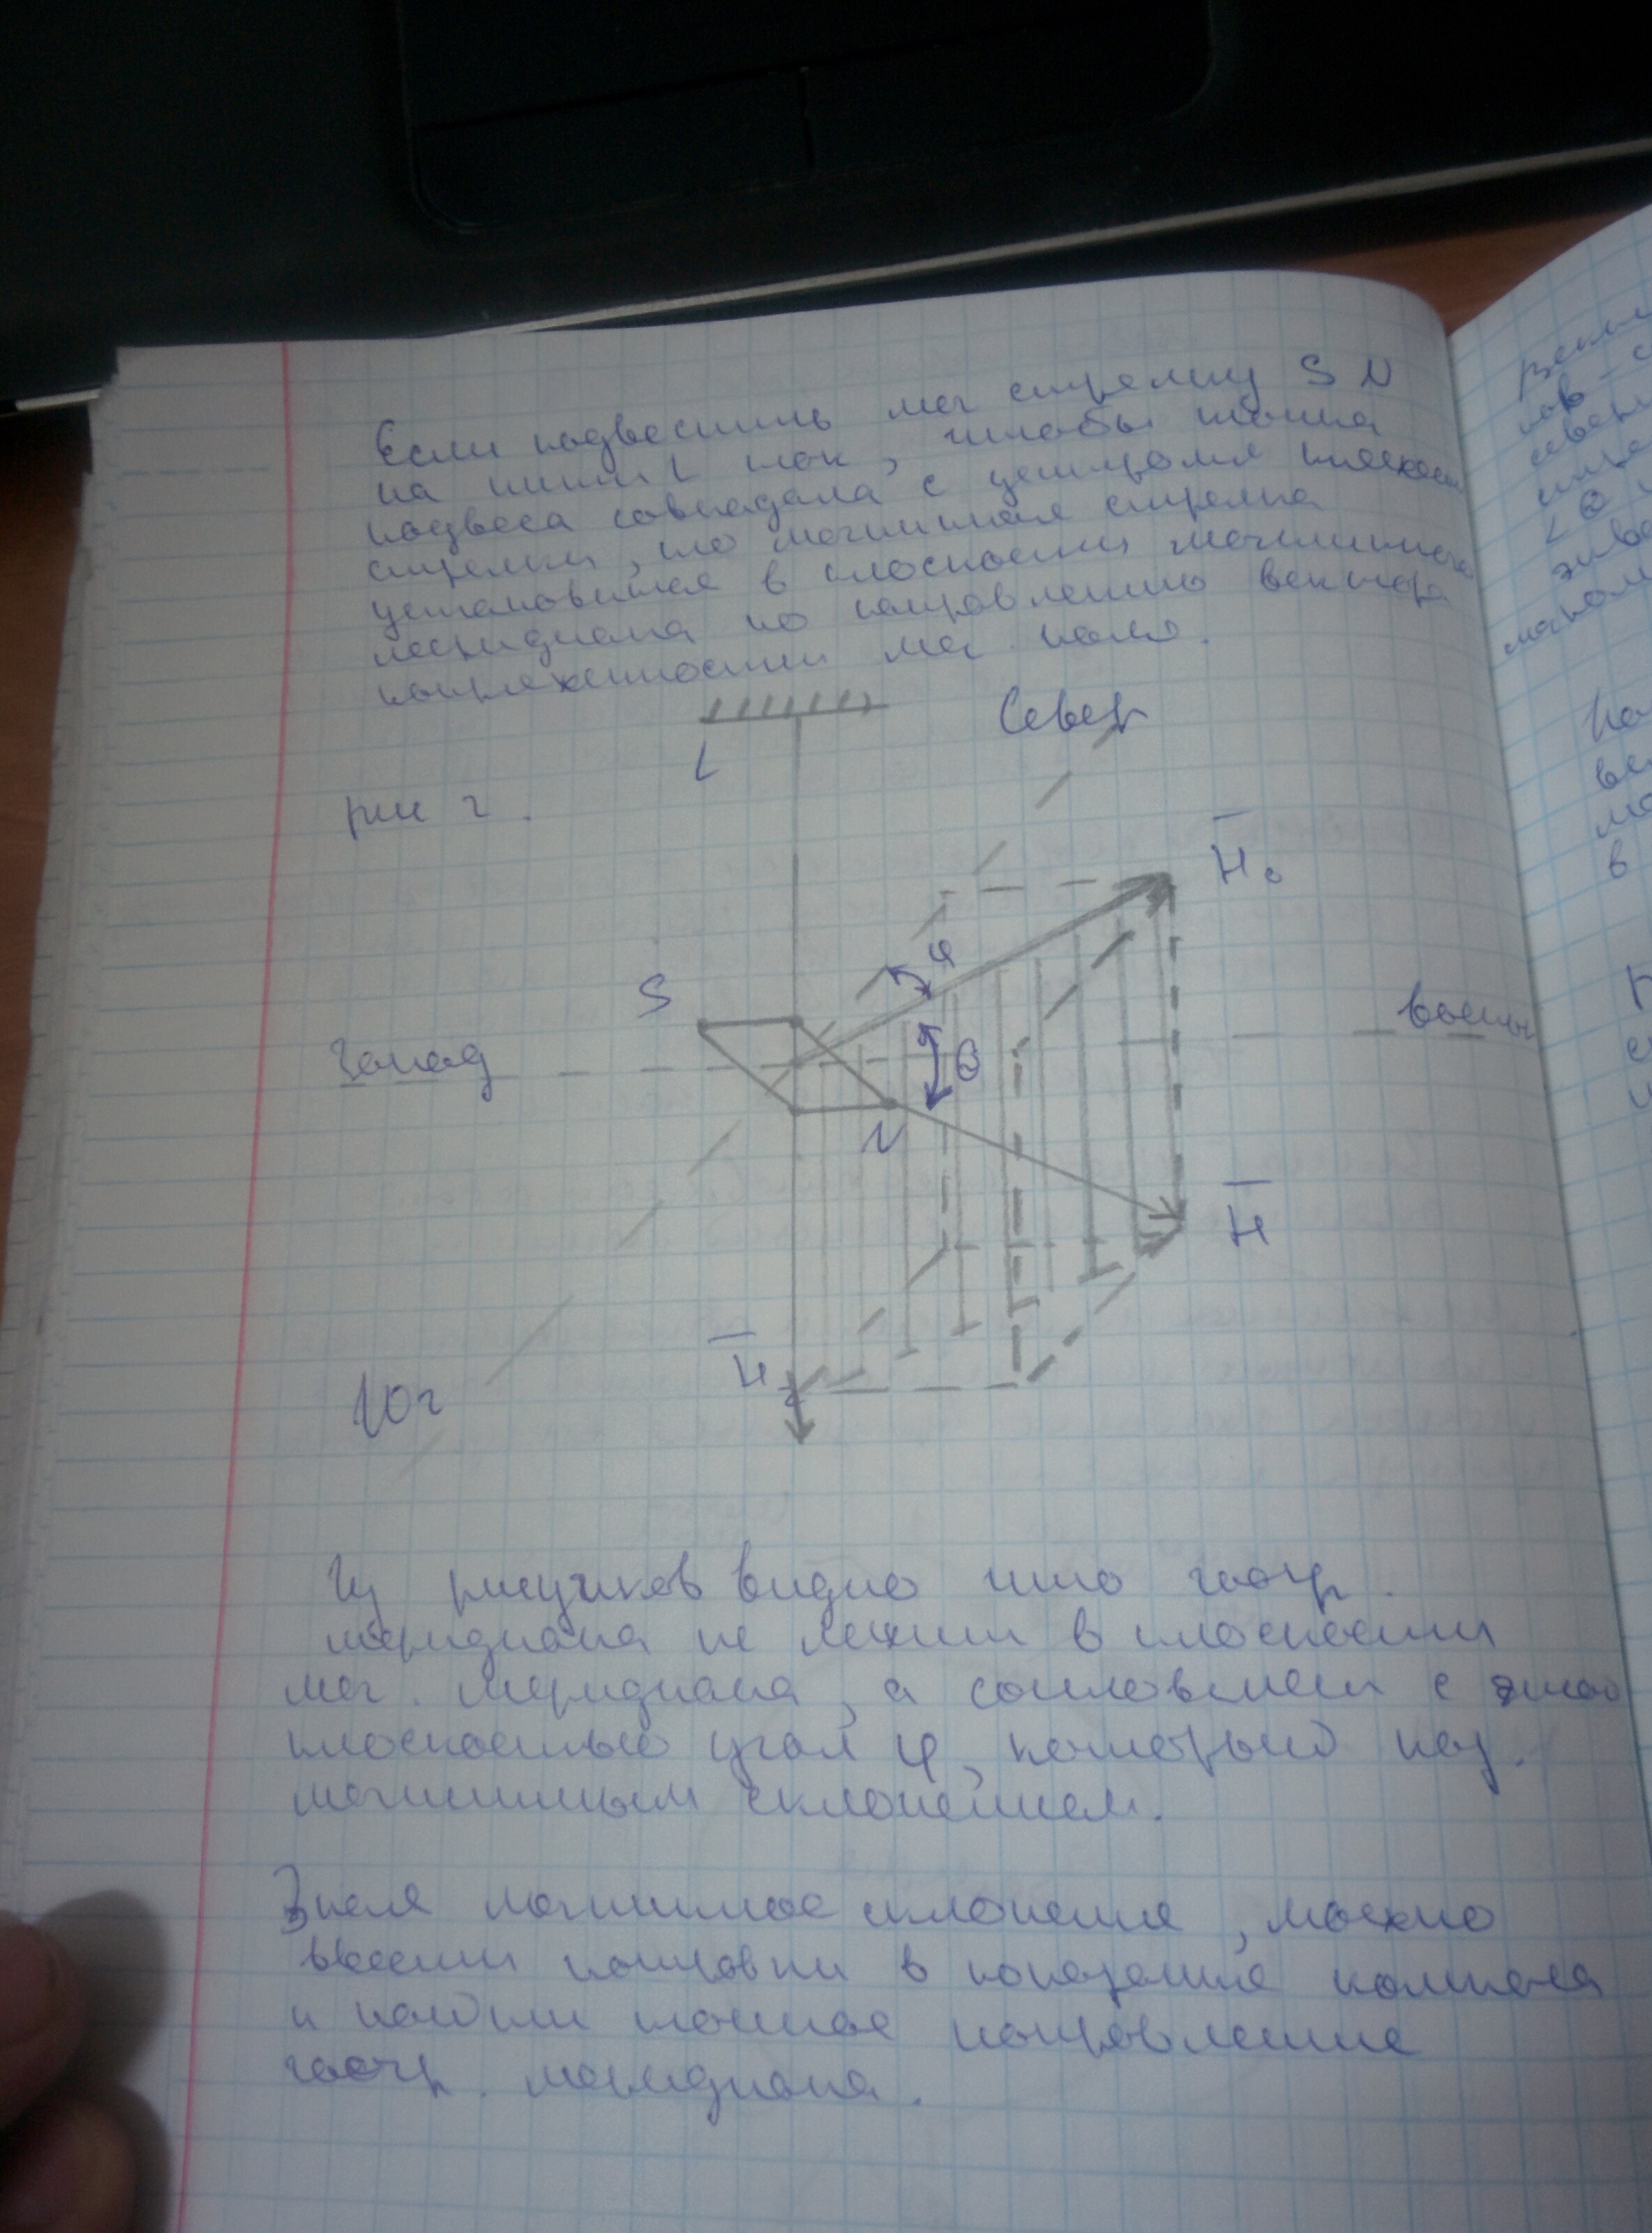 Если подвесить маг стрелку S N
на нити L так, чтобы точка
подвеса совпадала с центром
стрелки, то магнитная стрелка
установится в плоскости магнитного
меридиана по направлению вектора
напряженности маг поля.
L
Север
рис 2.
H₀
φ
S
Запад
θ
Восток
N
H
H_z
Юг
Из рисунков видно что геогр.
меридиана не лежит в плоскости
маг. меридиана, а составляет с этой
плоскостью угол φ, который наз.
магнитным склонением.
Зная магнитное склонение, можно
ввести поправки в показания компаса
и найти точное направление
геогр. меридиана.